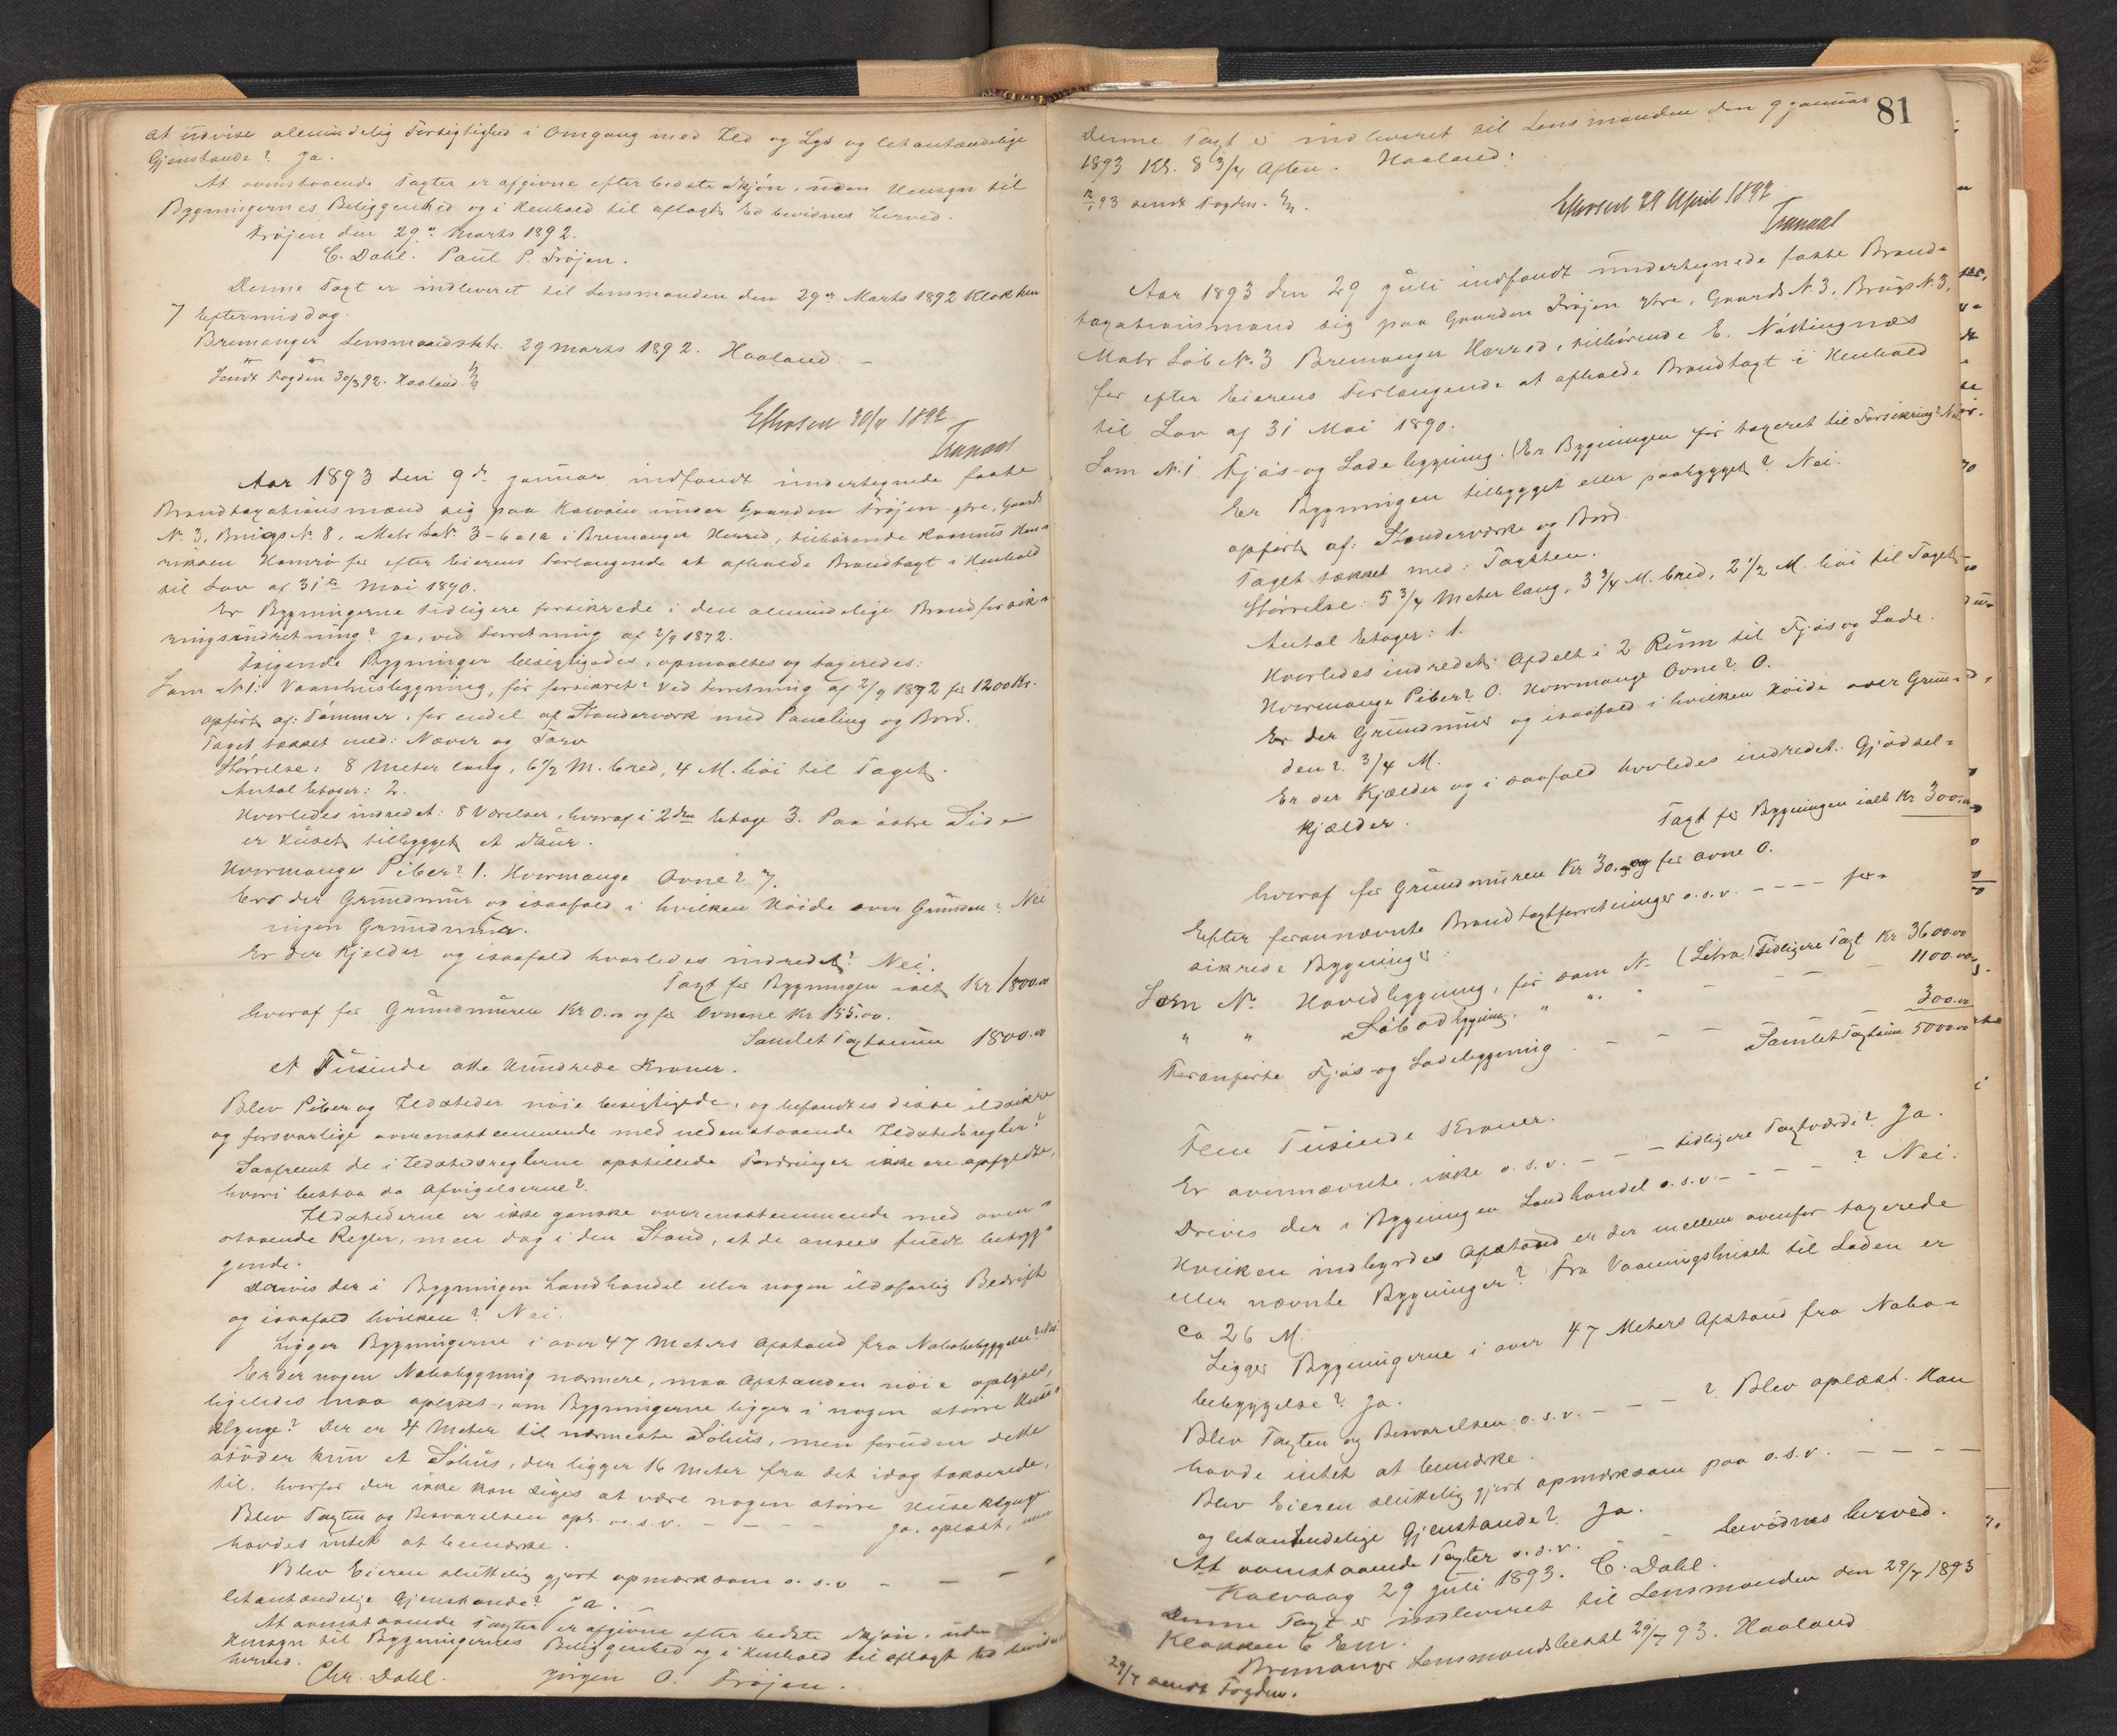 at udvise almindelig Forsigtighed i Omgang med Ild og Lys og letantændelige
Gjenstande? Ja.
At ovenstaaende Taxter er afgivne efter bedste Skjøn, uden Hensyn til
Bygningernes Beliggenhed og i Henhold til aflagt Ed bevidnes herved.
Frøjen den 29de Marts 1892.
C. Dahl. Paul P. Frøjen.
Denne Taxt er indleveret til Lensmanden den 29de Marts 1892 Klokken
7 Eftermiddag.
Bremanger Lensmandsbest. 29 Marts 1892. Haaland.
Sendt Fogden 30/3 92. Haaland.
1892
Aar 1893 den 9de Januar indfandt undertegnede faste
Brandtaxationsmænd sig paa Kalvaag under Gaarden Frøjen ytre, Gaards
No. 3, Brugs No. 8, Matr. LNo. 3-6a1a i Bremanger Herred, tilhørende Rasmus Hen=
riksen Hamrø for efter Eierens Forlangende at afholde Brandtaxt i Henhold
til Lov af 31te Mai 1890.
Er Bygningerne tidligere forsikrede i den almindelige Brandforsik=
ringsindretning? Ja, ved Forretning af 2/9 1872.
Følgende Bygninger besigtigedes, opmaaltes og taxeredes:
Som No 1: Vaanhusbygning, før forsikret? Ved Forretning af 2/9 1872 for 1200 Kr.
opført af: Tømmer, for endel af Standerværk med Paneling og Bord.
Taget tækket med: Næver og Torv
Størrelse: 8 Meter lang, 6 1/2 M. bred, 4 M. høi til Taget.
Antal Etager: 2.
Hvorledes indredet: 8 Værelser, hvoraf i 2den Etage 3. Paa østre Side
er Huset tilbygget et Skur.
Hvormange Piber? 1. Hvormange Ovne? 7.
Er der Grundmur og isaafald i hvilken Høide over Grunden? Nei
ingen Grundmur.
Er der Kjelder og isaafald hvorledes indredet? Nei.
Taxt for Bygningen ialt Kr 1800.00
hvoraf for Grundmuren Kr 0.00 og for Ovnene Kr 155.00.
Samlet Taxtsum 1800.00
et Tusinde otte Hundrede Kroner.
Blev Piber og Ildsteder nøie besigtigede, og befandtes disse ildsikre
og forsvarlige overensstemmende med nedenstaaende Ildstedsregler?
Saafremt de i Ildstedsreglerne opstillede Fordringer ikke ere opfyldte,
hvori bestaa da Afvigelserne?
Ildstederne er ikke ganske overensstemmende med oven=
staaende Regler, men dog i den Stand, at de ansees fuldt betryg=
gende.
Drives der i Bygningen Landhandel eller nogen ildsfarlig Bedrift
og isaafald hvilken? Nei.
Ligger Bygningerne i over 47 Meters Afstand fra Nabobebyggelse? Nei
Er der nogen Nabobygning nærmere, maa Afstanden nøie oplyses,
ligeledes maa oplyses, om Bygningerne ligger i nogen større Huse=
klynge? Der er 4 Meter til nærmeste Søhus, men foruden dette
støder kun et Søhus, der ligger 16 Meter fra det idag takserede,
til, hvorfor der ikke kan siges at være nogen større Huseklynge.
Blev Taxten og Besvarelsen opl. o.s.v. - - - - Ja. oplæst, men
havdes intet at bemærke.
Blev Eieren sluttelig gjort opmærksom o.s.v - - -
letantændelige Gjenstande? Ja.
At ovenstaaende Taxter er afgivne efter bedste Skjøn, uden
Hensyn til Bygningernes Beliggenhed og i Henhold til aflagt Ed bevidnes
herved.
Chr. Dahl. Jørgen O. Frøjen.
81
Denne Taxt er indleveret til Lensmanden den 9 Januar
1893 Kl. 8 3/4 Aften. Haaland.
93 sendt Fogden.
29 April 1892
Aar 1893 den 29 Juli indfandt undertegnede faste Brand=
taxationsmand sig paa Gaarden Frøjen ytre, Gaards N. 3, Brugs N. 3,
Matr Løb No. 3 Bremanger Herred, tilhørende E. Nøttingnæs
for efter Eierens Forlangende at afholde Brandtaxt i Henhold
til Lov af 31 Mai 1890.
Som N. 1 Fjøs- og Ladebygning. (Er Bygningen før taxeret til Forsikring? Nei.
Er Bygningen tilbygget eller paabygget? Nei.
opført af: Standerværk og Bord.
Taget tækket med: Tagsten.
Størrelse: 5 3/4 Meter lang, 3 3/4 M. bred, 2 1/2 M. høi til Taget.
Antal Etager: 1.
Hvorledes indredet: Afdelt i 2 Rum til Fjøs og Lade.
Hvormange Piber? 0. Hvormange Ovne? 0.
Er der Grundmur og isaafald i hvilken Høide over Grun=
den? 3/4 M.
Er der Kjælder og i saafald hvorledes indredet: Gjødsel=
kjælder.
Taxt for Bygningen ialt Kr 300.00
hvoraf for Grundmuren Kr 30.00 og for Ovne 0.
Efter forannævnte Brandtaxtforretninger o.s.v. - - - - for=
sikrede Bygninger:
Som No Hovedbygning, før som N. (Litra) Tidligere Taxt Kr 3600.00
" " Søbodbygning. " " " - - - - 1100.00
Foranførte Fjøs- og Ladebygning. - - - - 300.00
Samlet Taxtsum 5000.00
Fem Tusinde Kroner.
Er ovennævnte, ikke o.s.v. - - - tidligere Taxtværdi? Ja.
Drives der i Bygningen Landhandel o.s.v. - - - - ? Nei.
Hvilken indbyrdes Afstand er der mellem ovenfor taxerede
eller nævnte Bygninger? Fra Vaaningshuset til Laden er
ca 26 M.
Ligger Bygningerne i over 47 Meters Afstand fra Nabo=
bebyggelse? Ja.
Blev Taxten og Besvarelsen o.s.v. - - - ? Blev oplæst. Han
havde intet at bemærke.
Blev Eieren sluttelig gjort opmærksom paa o.s.v. - - - -
og letantændelige Gjenstande? Ja.
At ovenstaaende Taxter o.s.v. - bevidnes herved.
Kalvaag 29 Juli 1893. C. Dahl.
Denne Taxt er indleveret til Lensmanden den 29/7 1893
Klokken 6 Em.
Bremanger Lensmandsbestil 29/7 93. Haaland
29/7 sendt Fogden.